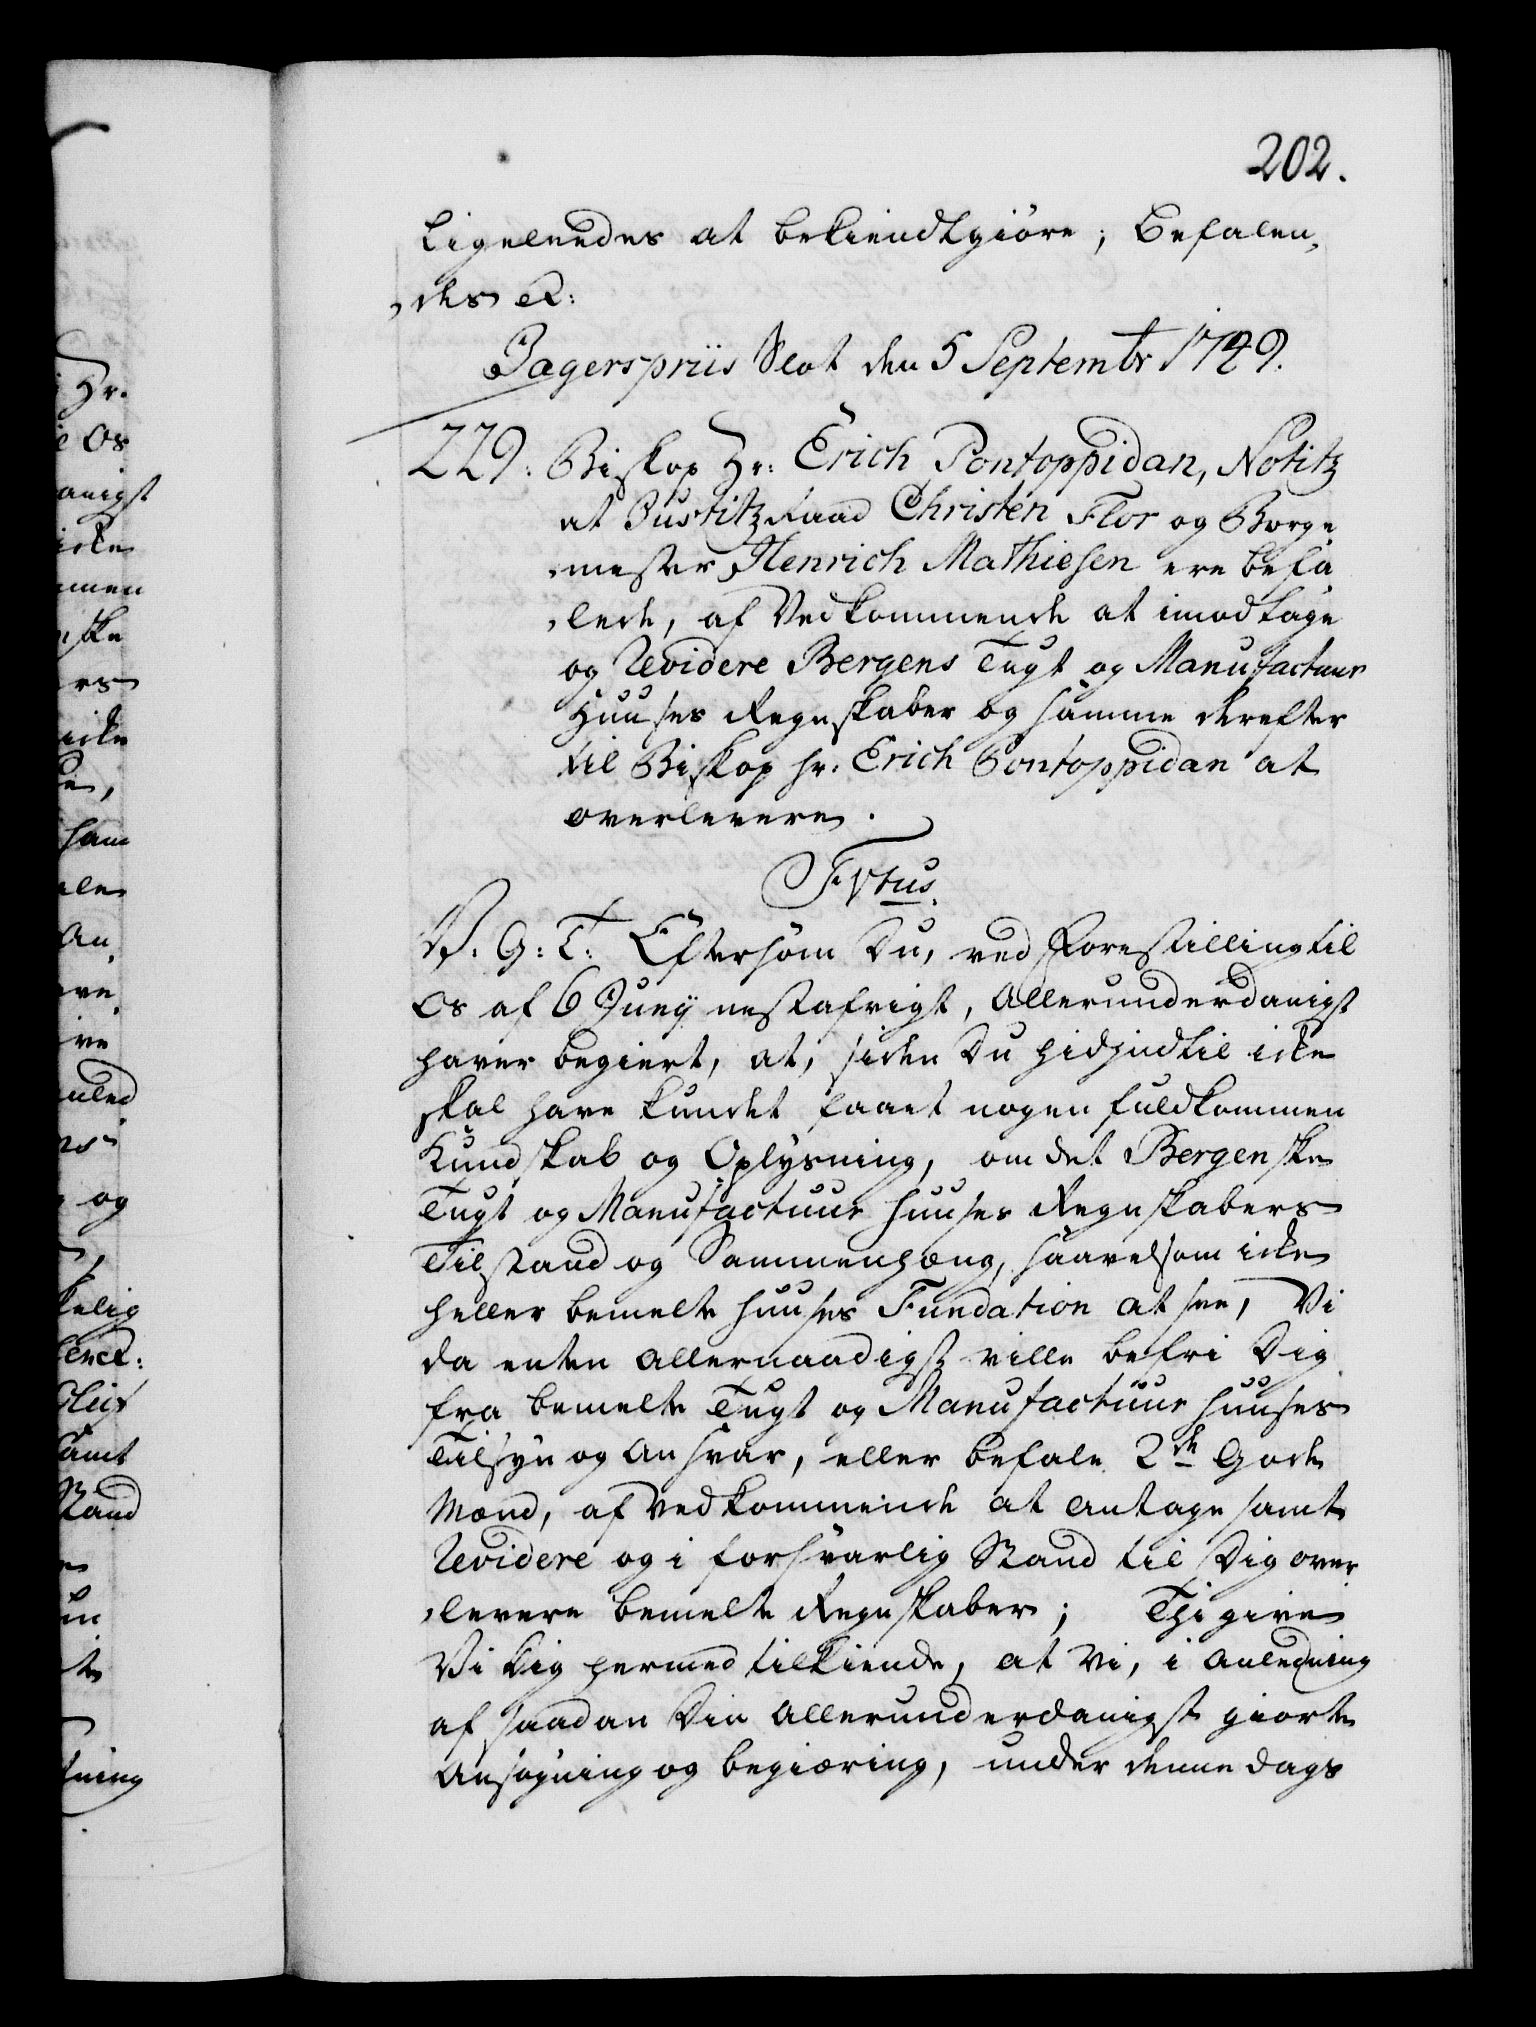 202.
ligeleedes at bekiendtgiöre; Befalen,
,des &:
Jagerspriis Slot den 5 Septembr 1749.
229: Biskop Hr: Erich Pontoppidan, Notitz
at Justitz Raad Christen Flor og Borge
,mester Henrich Mathiesen ere befa
,lede, af Vedkommende at imodtage
og Revidere Bergens Tugt og Manufactuur
Huuses Regnskaber og samme derefter
til Biskop hr: Erich Pontoppidan at
overlevere.
F Vtus.
V. G: T: Eftersom Du, ved Forestilling til
Os af 6 Junij nestafvigt, Allerunderdanigst
haver begiert, at, siden Du hidindtil icke
skal have kundet faaet nogen fuldkommen
Kundskab og Oplysning, om det Bergenske
Tugt og Manufactuur Huuses Regnskabers
Tilstand og Sammenhæng, saavelsom icke
heller bemelte Huuses Fundation at see, Vi
da enten Allernaadigst ville befri Dig
fra bemelte Tugt og Manufactuur Huuses
Tilsyn og Ansvar, eller befale 2de Gode
Mænd, af Vedkommende at antage samt
Revidere og i forsvarlig Stand til Dig over
,levere bemelte Regnskaber; Thi give
Vi Dig hermed tilkiende, at Vi, i Anledning
af saadan Din Allerunderdanigst giorte
Ansøgning og begiæring, under denne Dags